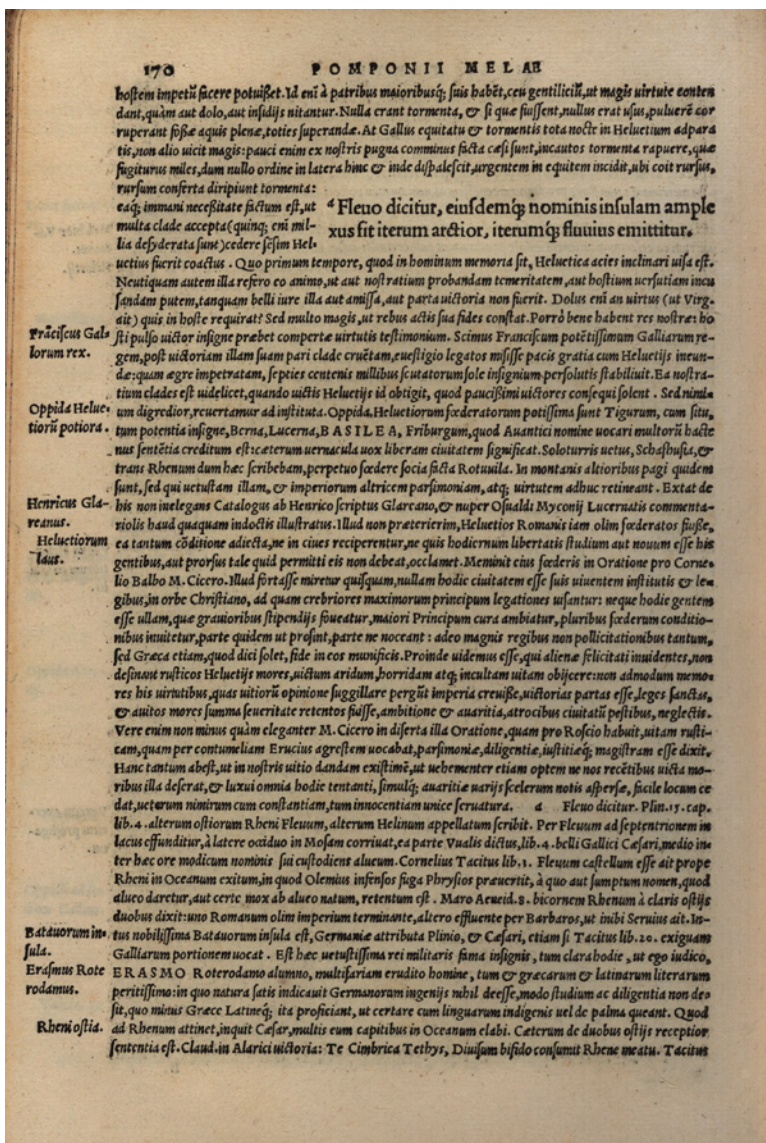 170 POMPONII MELAE
hostem impetũ facere potuißet. Id enĩ à patribus maioribusq; suis habẽt, ceu gentiliciũ, ut magis uirtute conten
dant, quàm aut dolo, aut insidijs nitantur. Nulla erant tormenta, & si quæ fuissent, nullus erat usus, puluerẽ cor
ruperant foßæ aquis plenæ, toties superandæ. At Gallus equitatu & tormentis tota nocte in Heluetium adpara
tis, non alio uicit magis: pauci enim ex nostris pugna comminus facta cæsi sunt, incautos tormenta rapuere, quæ
fugiturus miles, dum nullo ordine in latera hinc & inde dispalescit, urgentem in equitem incidit, ubi coit rursus,
rursum conferta diripiunt tormenta:
eaq; immani neceßitate factum est, ut
multa clade accepta (quinq; enĩ mil-
lia desyderata sunt) cedere sẽsim Hel-
a Fleuo dicitur, eiusdemq; nominis insulam ample
xus fit iterum arctior, iterumq; fluuius emittitur.
uetius fuerit coactus. Quo primum tempore, quod in hominum memoria sit, Heluetica acies inclinari uisa est.
Neutiquam autem illa refero eo animo, ut aut nostratium probandam temeritatem, aut hostium uersutiam incu
sandam putem, tanquam belli iure illa aut amissa, aut parta uictoria non fuerit. Dolus enĩ an uirtus (ut Virg.
ait) quis in hoste requirat? Sed multo magis, ut rebus actis sua fides constat. Porrò bene habent res nostræ: ho
sti pulso uictor insigne præbet compertæ uirtutis testimonium. Scimus Franciscum potẽtissimum Galliarum re-
Frãciscus Gal-
lorum rex.
gem, post uictoriam illam suam pari clade cruẽtam, euestigio legatos misisse pacis gratia cum Heluetijs ineun-
dæ: quam ægre impetratam, septies centenis millibus scutatorum sole insignium persolutis stabiliuit. Ea nostra-
tium clades est uidelicet, quando uictis Heluetijs id obtigit, quod paucißimi uictores consequi solent. Sed nimi-
um digredior, reuertamur ad instituta. Oppida Heluetiorum fœderatorum potissima sunt Tigurum, cum situ,
Oppida Helue-
tiorũ potiora.
tum potentia insigne, Berna, Lucerna, BASILEA, Friburgum, quod Auantici nomine uocari multorũ hacte
nus sentẽtia creditum est: cæterum uernacula uox liberam ciuitatem significat. Soloturris uetus, Schafhusia, &
trans Rhenum dum hæc scribebam, perpetuo fœdere socia facta Rotuuila. In montanis altioribus pagi quidem
sunt, sed qui uetustam illam, & imperiorum altricem parsimoniam, atq; uirtutem adhuc retineant. Extat de
Henricus Gla-
reanus.
his non inelegans Catalogus ab Henrico scriptus Glareano, & nuper Osualdi Myconij Lucernatis commenta-
riolis haud quaquam indoctis illustratus. Illud non præterierim, Heluetios Romanis iam olim fœderatos fuiße,
Heluetiorum
laus.
ea tantum cõditione adiecta, ne in ciues reciperentur, ne quis hodiernum libertatis studium aut nouum esse his
gentibus, aut prorsus tale quid permitti eis non debeat, occlamet. Meminit eius fœderis in Oratione pro Corne-
lio Balbo M. Cicero. Illud fortasse miretur quisquam, nullam hodie ciuitatem esse suis uiuentem institutis & le-
gibus, in orbe Christiano, ad quam crebriores maximorum principum legationes uisantur: neque hodie gentem
esse ullam, quæ grauioribus stipendijs foueatur, maiori Principum cura ambiatur, pluribus fœderum conditio-
nibus inuitetur, parte quidem ut prosint, parte ne noceant: adeo magnis regibus non pollicitationibus tantum,
sed Græca etiam, quod dici solet, fide in eos munificis. Proinde uidemus esse, qui alienæ felicitati inuidentes, non
desinant rusticos Heluetijs mores, uictum aridum, horridam atq; incultam uitam obijcere: non admodum memo-
res his uirtutibus, quas uitiorũ opinione suggillare pergũt imperia creuiße, uictorias partas esse, leges sanctas,
& auitos mores summa seueritate retentos fuisse, ambitione & auaritia, atrocibus ciuitatũ pestibus, neglectis.
Vere enim non minus quàm eleganter M. Cicero in diserta illa Oratione, quam pro Roscio habuit, uitam rusti-
cam, quam per contumeliam Erucius agrestem uocabat, parsimoniæ, diligentiæ, iustitiæq; magistram esse dixit.
Hanc tantum abest, ut in nostris uitio dandam existimẽ, ut uehementer etiam optem ne nos recẽtibus uicta mo-
ribus illa deserat, & luxui omnia hodie tentanti, simulq; auaritiæ uarijs scelerum notis aspersæ, facile locum ce
dat, ueterum nimirum cum constantiam, tum innocentiam unice seruatura. a Fleuo dicitur. Plin. 15. cap.
lib. 4. alterum ostiorum Rheni Fleuum, alterum Helinum appellatum scribit. Per Fleuum ad septentrionem in
lacus effunditur, à latere occiduo in Mosam corriuat, ea parte Vualis dictus, lib. 4. belli Gallici Cæsari, medio in-
ter hæc ore modicum nominis sui custodiens alueum. Cornelius Tacitus lib. 1. Fleuum castellum esse ait prope
Rheni in Oceanum exitum, in quod Olemius infensos fuga Phrysios præuertit, à quo aut sumptum nomen, quod
alueo daretur, aut certe mox ab alueo natum, retentum est. Maro Aeneid. 8. bicornem Rhenum à claris ostijs
duobus dixit: uno Romanum olim imperium terminante, altero effluente per Barbaros, ut inibi Seruius ait. In-
Batauorum in-
sula.
tus nobilissima Batauorum insula est, Germaniæ attributa Plinio, & Cæsari, etiam si Tacitus lib. 20. exiguam
Galliarum portionem uocat. Est hæc uetustissima rei militaris fama insignis, tum clara hodie, ut ego iudico,
Erasmus Rote
rodamus.
ERASMO Roterodamo alumno, multifariam erudito homine, tum & græcarum & latinarum literarum
peritissimo: in quo natura satis indicauit Germanorum ingenijs nihil deesse, modo studium ac diligentia non de-
sit, quo minus Græce Latineq; ita proficiant, ut certare cum linguarum indigenis uel de palma queant. Quod
Rheni ostia.
ad Rhenum attinet, inquit Cæsar, multis eum capitibus in Oceanum elabi. Cæterum de duobus ostijs receptior
sententia est. Claud. in Alarici uictoria: Te Cimbrica Tethys, Diuisum bifido consumit Rhene meatu. Tacitus